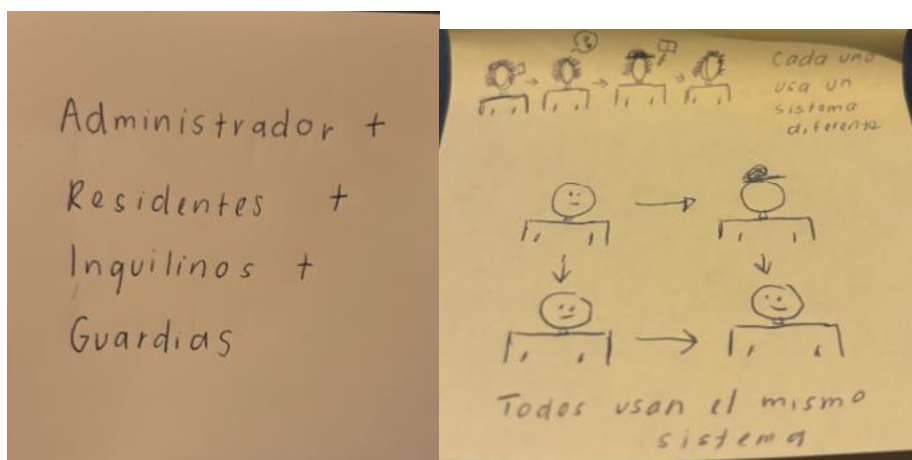 Administrador +
Residentes +
Inquilinos +
Guardias
Cada uno
usa un
sistema
diferente
Todos usan el mismo
sistema